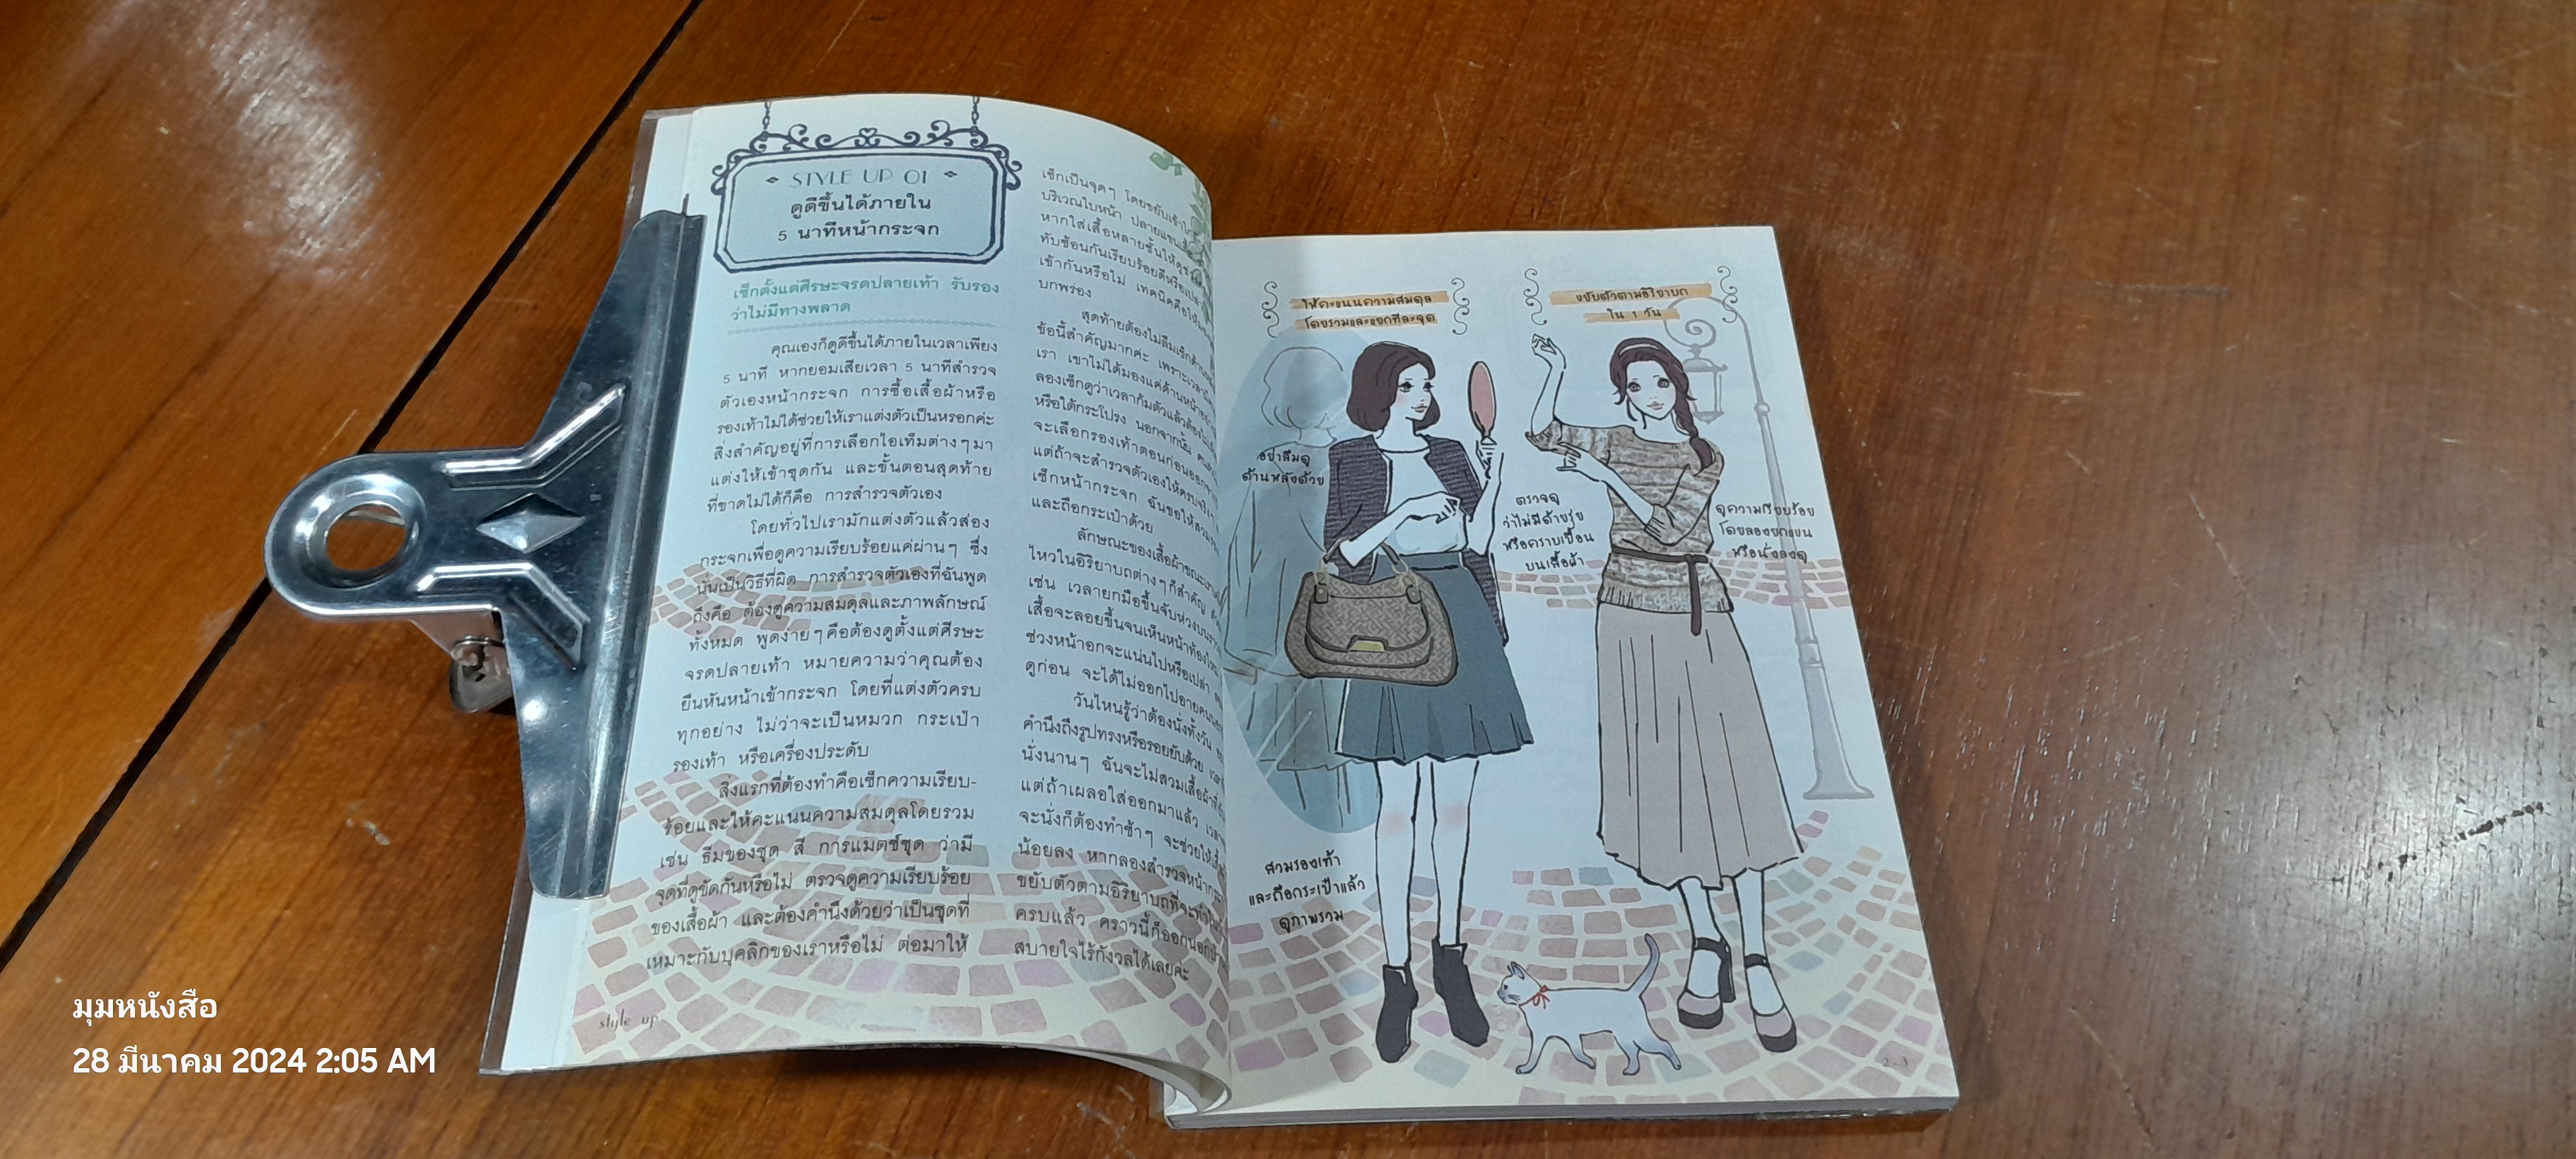 STYLE UP 01
ดูดีขึ้นได้ภายใน
5 นาทีหน้ากระจก
เช็กตั้งแต่ศีรษะจรดปลายเท้า รับรอง
ว่าไม่มีทางพลาด
คุณเองก็ดูดีขึ้นได้ภายในเวลาเพียง
5 นาที หากยอมเสียเวลา 5 นาทีสำรวจ
ตัวเองหน้ากระจก การซื้อเสื้อผ้าหรือ
รองเท้าไม่ได้ช่วยให้เราแต่งตัวเป็นหรอกค่ะ
สิ่งสำคัญอยู่ที่การเลือกไอเท็มต่างๆ มา
แต่งให้เข้าชุดกัน และขั้นตอนสุดท้าย
ที่ขาดไม่ได้ก็คือ การสำรวจตัวเอง
โดยทั่วไปเรามักแต่งตัวแล้วส่อง
กระจกเพื่อดูความเรียบร้อยแค่ผ่านๆ ซึ่ง
นั่นเป็นวิธีที่ผิด การสำรวจตัวเองที่ฉันพูด
ถึงคือ ต้องดูความสมดุลและภาพลักษณ์
ทั้งหมด พูดง่ายๆ คือต้องดูตั้งแต่ศีรษะ
จรดปลายเท้า หมายความว่าคุณต้อง
ยืนหันหน้าเข้ากระจก โดยที่แต่งตัวครบ
ทุกอย่าง ไม่ว่าจะเป็นหมวก กระเป๋า
รองเท้า หรือเครื่องประดับ
สิ่งแรกที่ต้องทำคือเช็กความเรียบ-
ร้อยและให้คะแนนความสมดุลโดยรวม
เช่น ธีมของชุด สี การแมตช์ชุด ว่ามี
จุดที่ดูขัดกันหรือไม่ ตรวจดูความเรียบร้อย
ของเสื้อผ้า และต้องคำนึงด้วยว่าเป็นชุดที่
เหมาะกับบุคลิกของเราหรือไม่ ต่อมาให้
เช็กเป็นจุดๆ โดยขยับเข้า
บริเวณใบหน้า ปลายแขนเสื้อ
หากใส่เสื้อหลายชั้นให้ดู
ทับซ้อนกันเรียบร้อยดีหรือเปล่า
เข้ากันหรือไม่ เทคนิคคือให้
บกพร่อง
สุดท้ายต้องไม่ลืมเช็กด้าน
ข้อนี้สำคัญมากค่ะ เพราะเวลา
เรา เขาไม่ได้มองแค่ด้านหน้า
ลองเช็กดูว่าเวลาก้มตัวแล้วต้อง
หรือใต้กระโปรง นอกจากนั้น
จะเลือกรองเท้าตอนก่อนออก
แต่ถ้าจะสำรวจตัวเองให้ครบ
เช็กหน้ากระจก ฉันขอให้สวม
และถือกระเป๋าด้วย
ลักษณะของเสื้อผ้าขณะ
ไหวในอิริยาบถต่างๆ ก็สำคัญ
เช่น เวลายกมือขึ้นจับห่วงบน
เสื้อจะลอยขึ้นจนเห็นหน้าท้อง
ช่วงหน้าอกจะแน่นไปหรือเปล่า
ดูก่อน จะได้ไม่ออกไปอายคน
วันไหนรู้ว่าต้องนั่งทั้งวัน
คำนึงถึงรูปทรงหรือรอยยับด้วย
นั่งนานๆ ฉันจะไม่สวมเสื้อผ้าที่
แต่ถ้าเผลอใส่ออกมาแล้ว
จะนั่งก็ต้องทำช้าๆ จะช่วยให้
น้อยลง หากลองสำรวจหน้ากระจก
ขยับตัวตามอิริยาบถที่จะทำใน
ครบแล้ว คราวนี้ก็ออกนอก
สบายใจไร้กังวลได้เลยค่ะ
style up
ให้คะแนนความสมดุล
โดยรวมและแยกทีละจุด
อย่าลืมดู
ด้านหลังด้วย
สวมรองเท้า
และถือกระเป๋าแล้ว
ดูภาพรวม
ขยับตัวตามอิริยาบถ
ใน 1 วัน
ตรวจดู
ว่าไม่มีด้ายรุ่ย
หรือคราบเปื้อน
บนเสื้อผ้า
ดูความเรียบร้อย
โดยลองยกแขน
หรือนั่งลงดู
2-3
มุมหนังสือ
28 มีนาคม 2024 2:05 AM